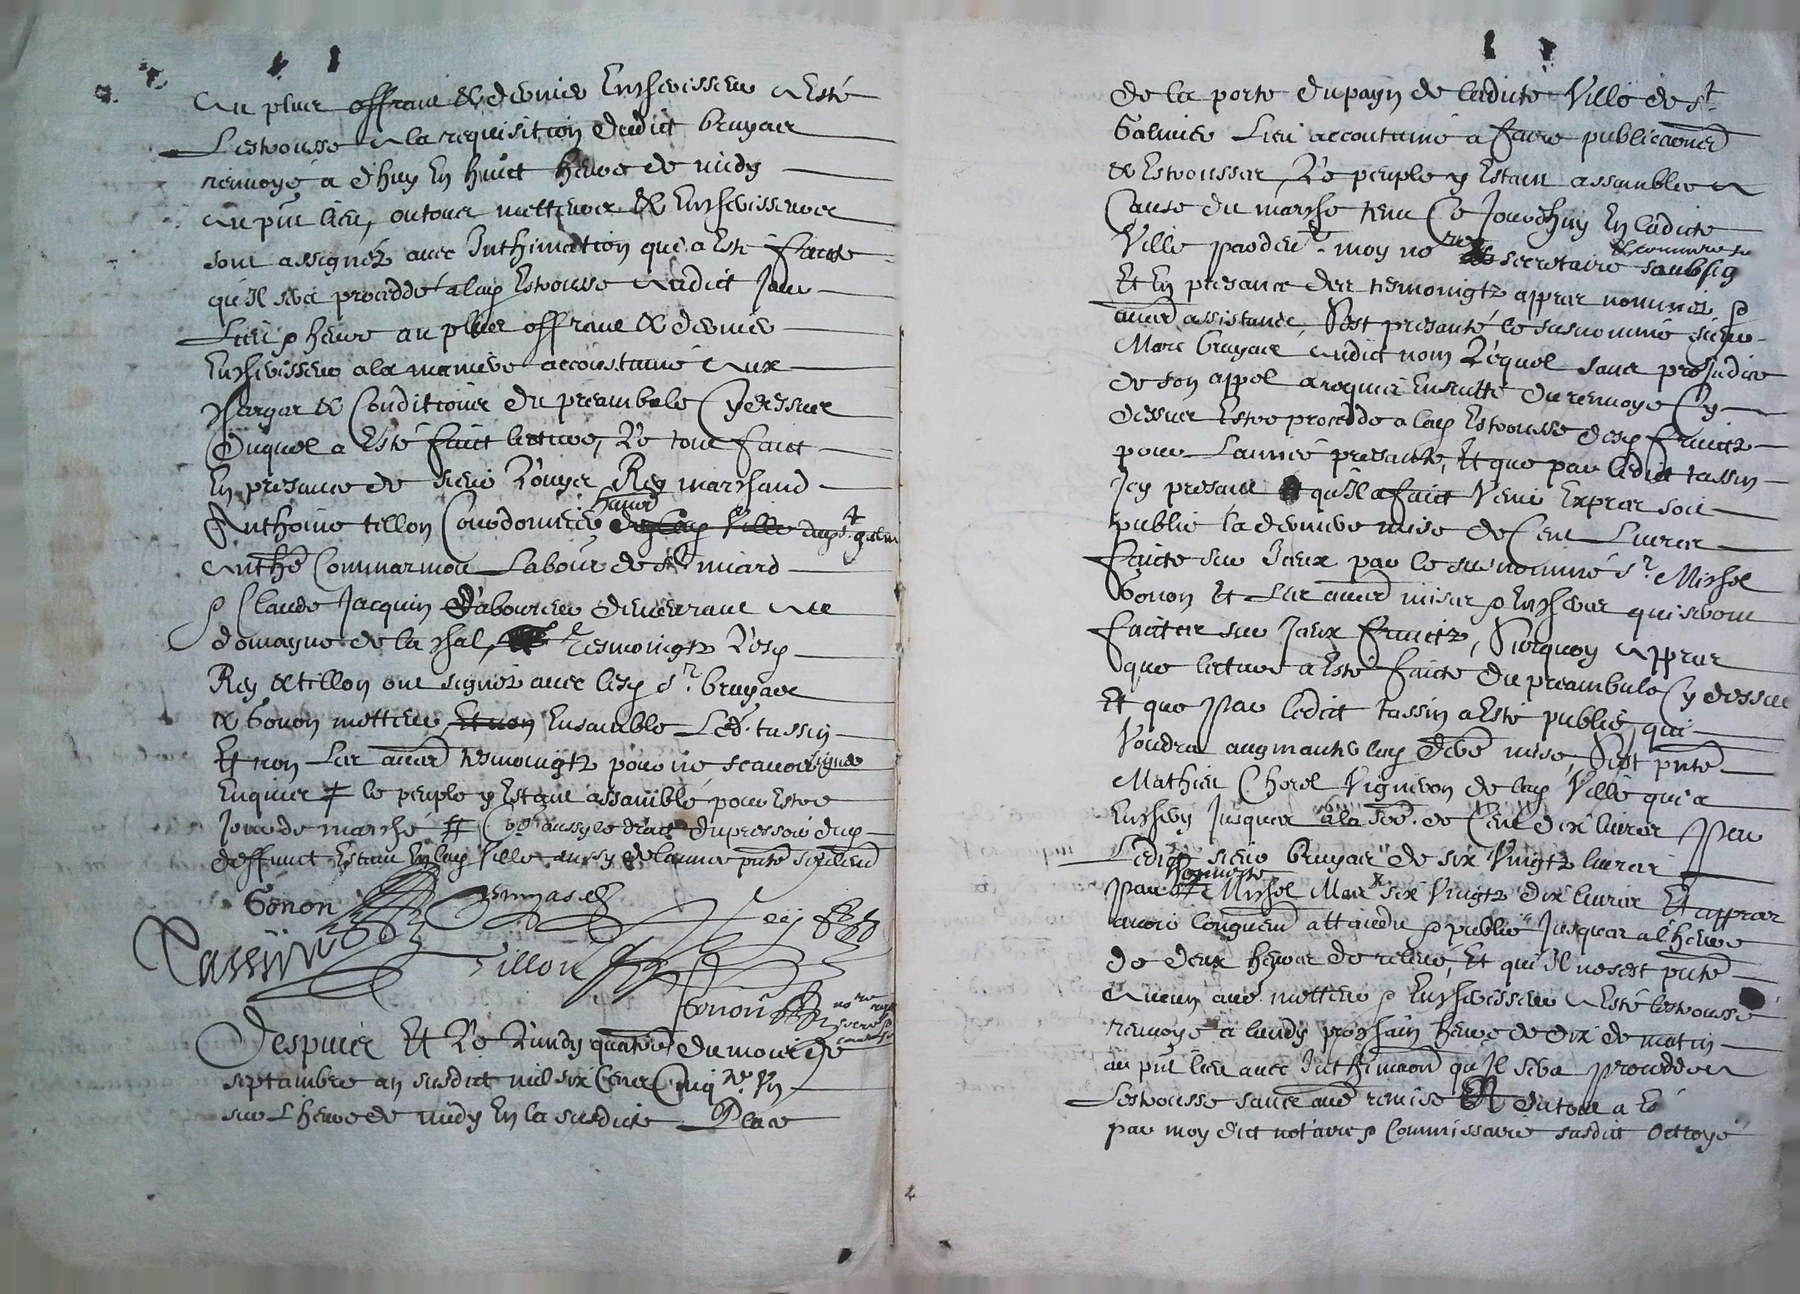 Au plus offrant & dernier Encherisseur A Esté
Lestrousse A la requisition dudict bruyas
renvoyé a d'huy En huict heure de midy
Au pnt lieu, ou tous metteurs & Encherisseurs
sont assignéz avec Inthimation qui a Esté faicte
qu'il sera proceddé a lad Estrousse Audict Jour
Lieu & heure au plus offrant & dernier
Encherisseur a la maniere accoustumé Aux
Charges & Conditions du preambule Cy dessus
Duquel a Esté faict lecture, Le tout faict
En presance de sieur Rey marchand
Anthoine tillon Cordonnier habitant dud St galm
Anthe Commarmon Labour de St miard
& Claude Jacquin Laboureur demeurant Au
domayne de la Chal, tesmoingtz Lesd
Rey & tillon ont signéz avec lesd Sr bruyas
& Gonon metteur, Et non Ensamble Led tassin
Et non Les autres tesmoingtz pour ne scavoir signer
Enquis le peuple y Estant assamblé pour Estre
Jour de marché Et aussy le droict du pressoir dud
deffunct Estant En lad Ville aussy de lannee
Gonon
Rey
Tassin
Tillon
Gonon no.re
Despuis Et Le Lundy quatre du mois de
septambre an susdict mil six Cens Cinq.te Un
sur L heure de midy En la susdicte Place
de la porte du payn de ladicte Ville de St
Galmier Lieu accoutumé a faire publications
& Estrousses, Le peuple y Estant assamblé A
Cause du marché tenu Ce Jourdhuy En ladicte
Ville pardevt moy no.re secretaire & commre soubsig
Et En presance des tesmoingtz appres nommés &
assistance, S'est presanté le susnommé sieur
Marc bruyas Audict nom Lequel sans prejudice
de son appel a requis Ensuitte du renvoye Cy
dessus Estre proceddé a lad Estrousse desd fruictz
pour Lannée presante, Et que par ledict tassin
Icy presant qu'il a faict Venir Expres soit
publié la derniere mise de Cent Livres
faicte sur Iceux par le susnommé Sr Michel
Gonon Et Les autres mises & Encheres qui seront
faictes sur Iceux fruictz, Surquoy Appres
que lecture a Esté faicte du preambule Cy dessus
Et que Par ledict tassin a Esté publié, qui
Voudra augmanter lad dere mise, S'est pnté
Mathieu Chorel Vigneron de lad Ville qui a
Enchery Jusques a la de Cent dix livres Par
Ledict sieur bruyas de six Vingtz livres
Par Michel Marc six Vingtz dix livres Et appres
avoir longuemt attandu & publié Jusques a l heure
de deux heures de relevé, Et qu'il ne s'est pnté
Aucun aue metteur & Encherisseur A Esté lestrousse
renvoyé a lundy prochain heure de dix de matin
au pnt lieu avec Inthimaon qu'Il sera procedder A
Lestrousse sans aue remise Et du tout a Esté
par moy dict notaire & Commissaire susdict octroyé